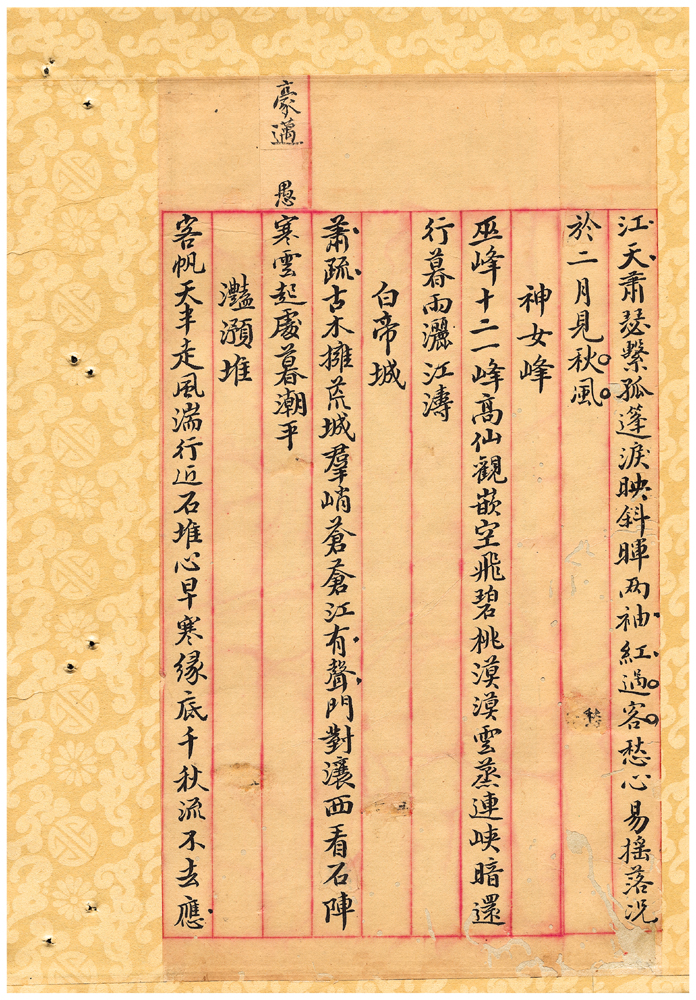 江天蕭瑟繫孤蓬淚映斜暉兩袖紅過客愁心易搖落况
於二月見秋風
神女峰
巫峰十二一峰高仙觀嵌空飛碧桃漠漠雲蒸連峽暗還
行暮雨灑江濤
白帝城
蕭疏古木擁荒城羣峭蒼蒼江有聲門對瀼西看石陣
豪邁 愚
寒雲起處暮潮平
灩澦堆
客帆天半走風湍行近石堆心早寒緣底千秋流不去應